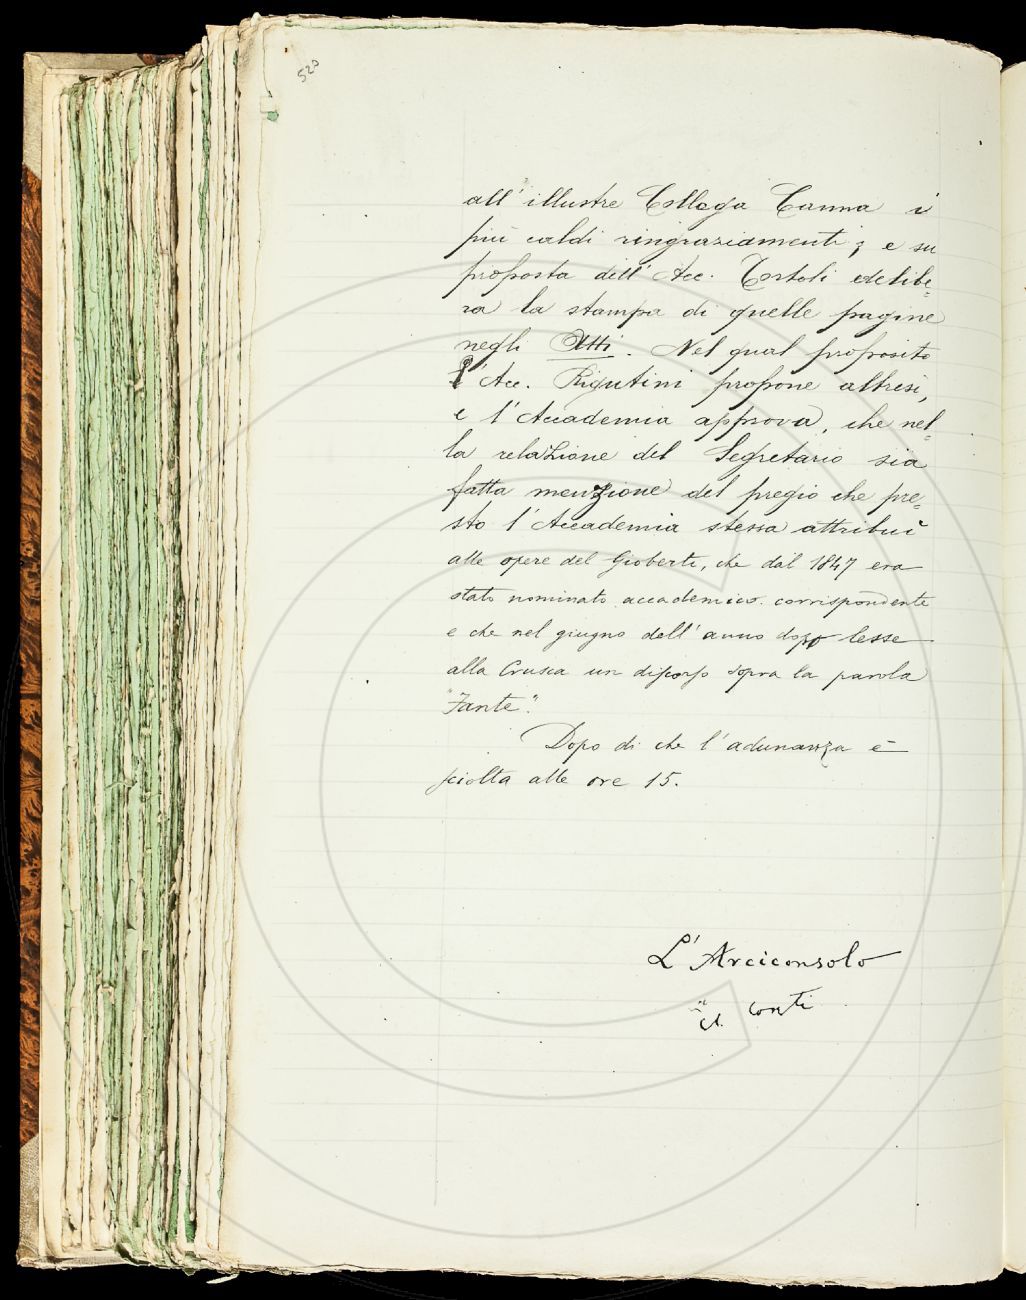 520
all' illustre Collega Canna i
più caldi ringraziamenti; e su
proposta dell' Acc. Tortoli delibe=
ra la stampa di quelle pagine
negli Atti. Nel qual proposito
l' Acc. Rigutini propone altresì,
e l' Accademia approva, che nel=
la relazione del Segretario sia
fatta menzione del pregio che pre=
sto l' Accademia stessa attribuì
alle opere del Gioberti, che dal 1847 era
stato nominato accademico corrispondente
e che nel giugno dell' anno dopo lesse
alla Crusca un discorso sopra la parola
"Fante".
Dopo di che l' adunanza è
sciolta alle ore 15.
L' Arciconsolo
A. Conti